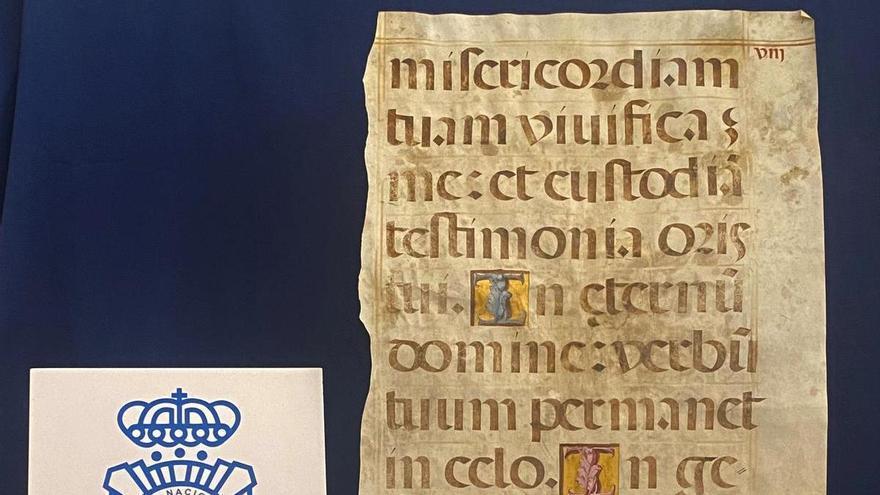 viij
misericordiam
tuam vivificas
me: et custodiā
testimonia oris
tui. In eternū
domine: verbū
tuum permanet
in celo. In ge=
NACIONAL